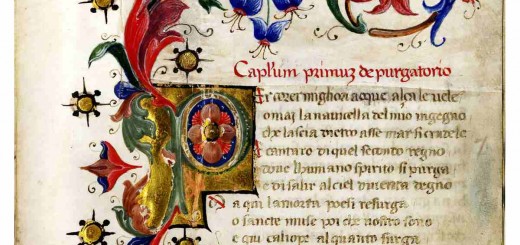 Capl'um primuz de purgatorio
Per corer miglior acque alci le uele
omai la nauicella del mio ingegno
che lascia dietro asse mar si crudele
E cantaro di quel secundo regno
doue lhumano spirito si purga
e di salir al ciel diuenta degno
Ma qui lamorta poesi resurga
o sancte muse poi che uostro sono
e qui caliope alquanto surga